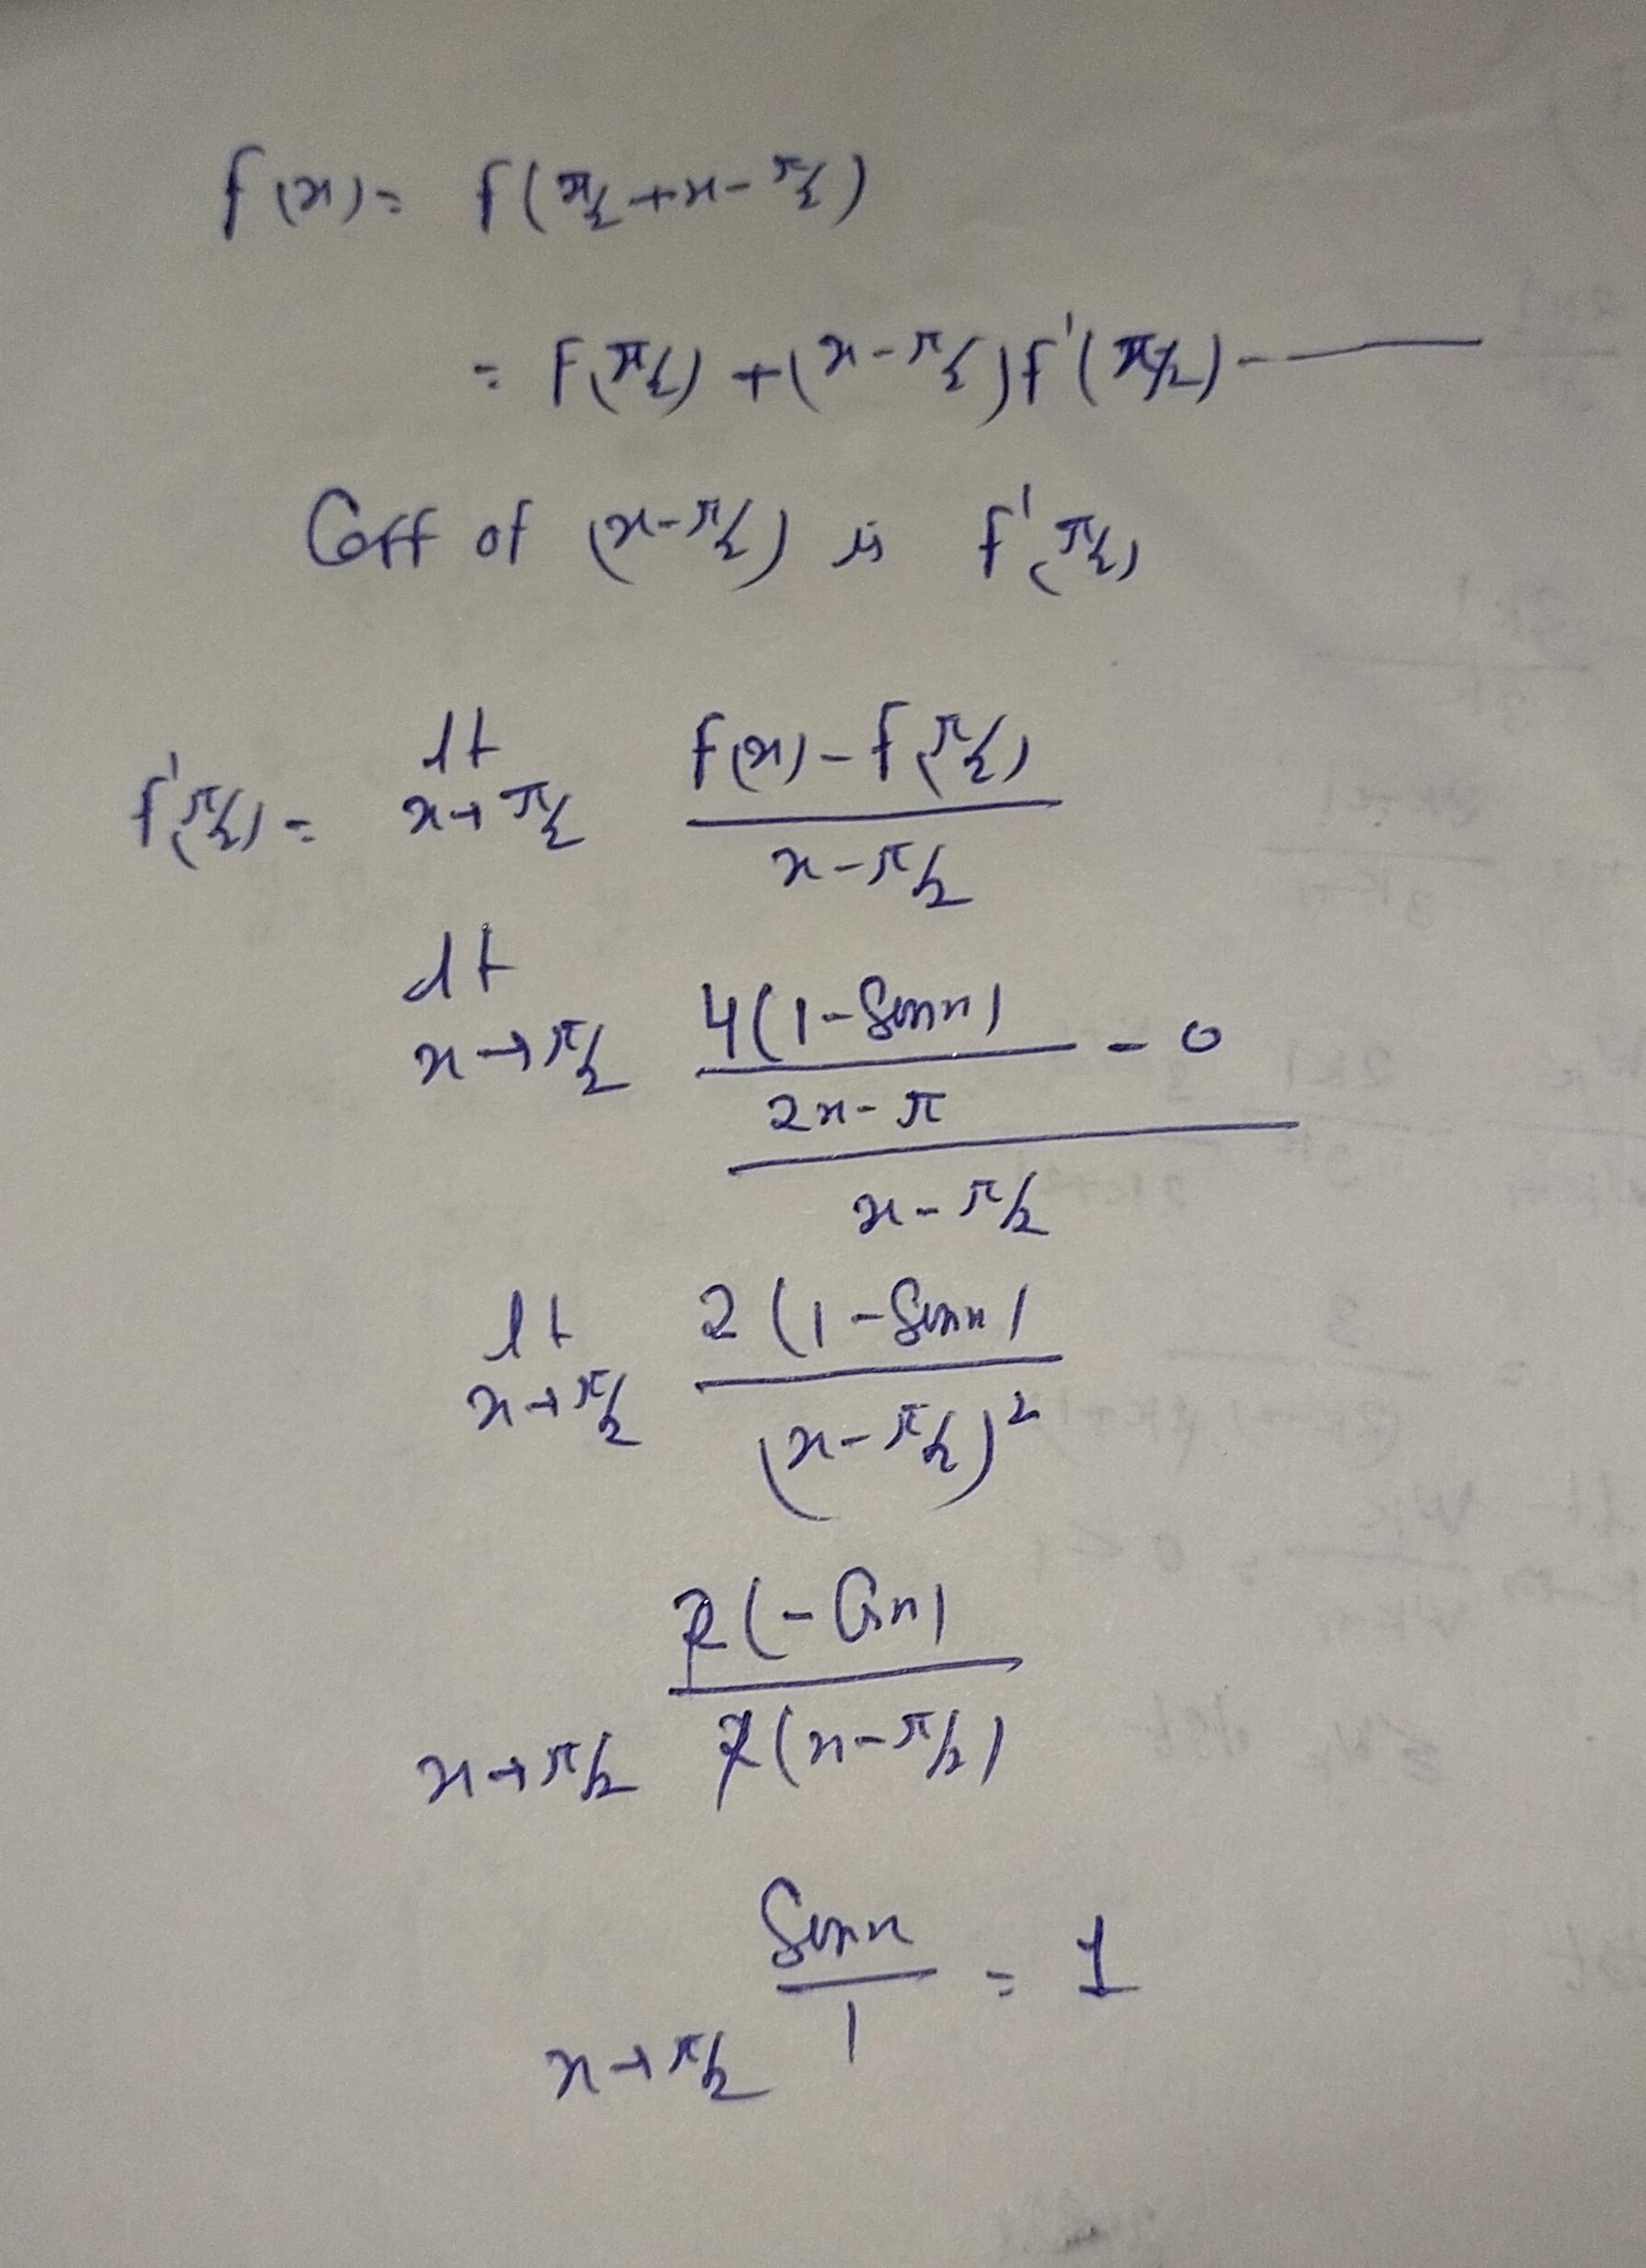 f(x) = f(π/2 + x - π/2)
= f(π/2) + (x - π/2) f'(π/2) - ——
Coff of (x - π/2) is f'(π/2)
f'(π/2) = lt x→π/2 (f(x) - f(π/2)) / (x - π/2)
lt x→π/2 (4(1 - Sinx) / (2x - π) - 0) / (x - π/2)
lt x→π/2 2(1 - Sinx) / (x - π/2)²
x→π/2 2(-Cosx) / 2(x - π/2)
x→π/2 Sinx / 1 = 1